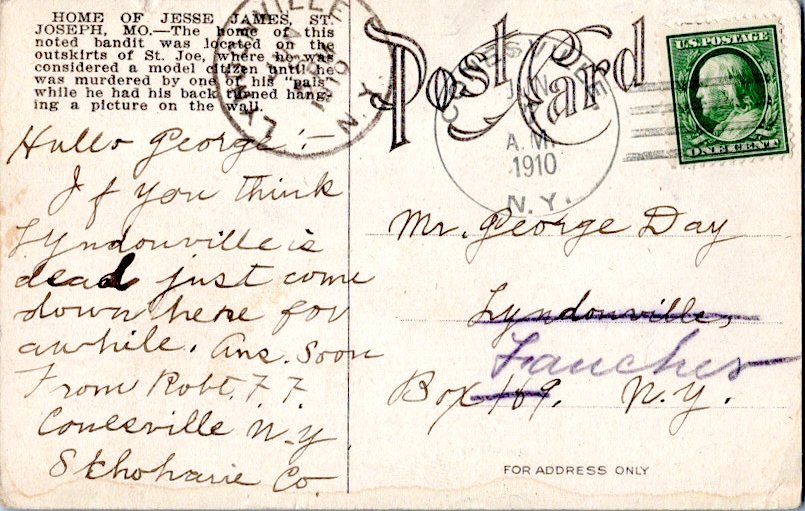 HOME OF JESSE JAMES, ST.
JOSEPH, MO.—The home of this
noted bandit was located on the
outskirts of St. Joe, where he was
considered a model citizen until he
was murdered by one of his "pals"
while he had his back turned hang-
ing a picture on the wall.
Post Card
U.S. POSTAGE
ONE CENT
CONESVILLE
JAN
A.M.
1910
N.Y.
VILLE
N.Y.
Hello George!-
If you think
Lyndonville is
dead just come
down here for
awhile. Ans. Soon
From Robt. F. F.
Conesville N.Y
Schoharie Co.
Mr. George Day
Lyndonville,
Fancher
Box 169. N.Y.
FOR ADDRESS ONLY